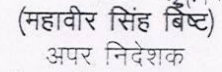 (महावीर सिंह बिष्ट)
अपर निदेशक